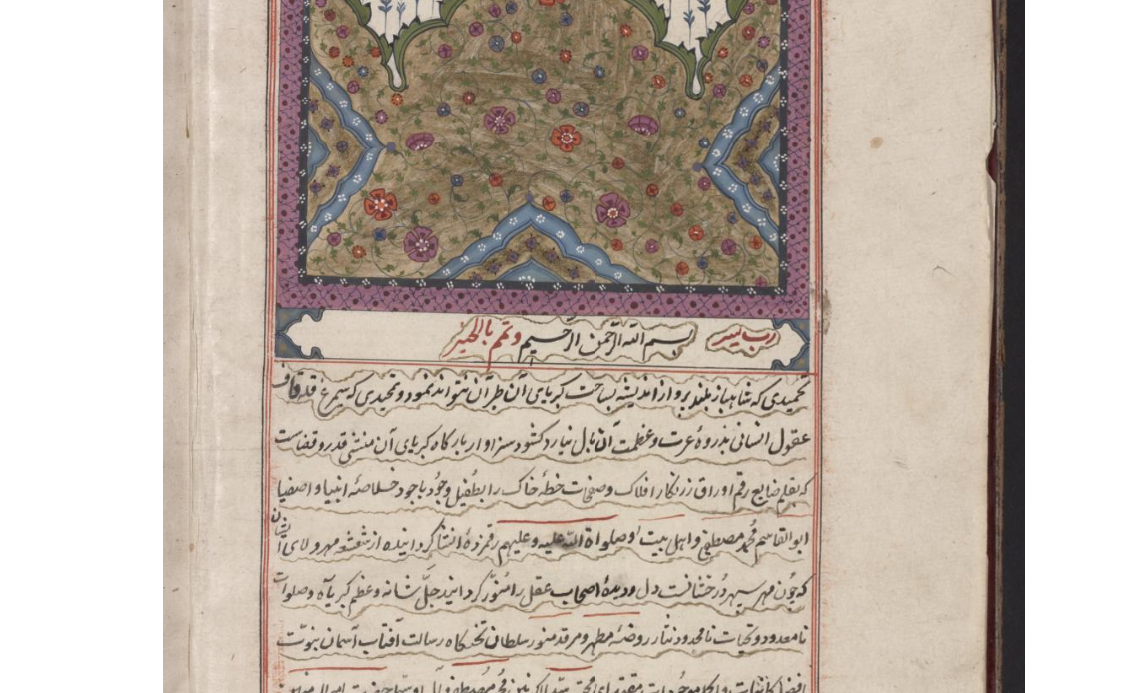 رب یسر بسم الله الرحمن الرحیم وتمم بالخیر
تحمیدی که شاهباز بلند پرواز اندیشه بساحت کبریای آن طیران نتواند نمود و تمجیدی که سیمرغ قله قاف
عقول انسانی بذروهٔ عزت و عظمت آن بال نیارد کشود سزاوار بارگاه کبریای آن منشئ قدر و قضاست
که بقلم صنایع رقم اوراق زرنکار افلاک و صفحات خطهٔ خاک را بطفیل وجود باجود خلاصهٔ انبیا و اصفیا
ابو القاسم محمد مصطفی و اهل بیت او صلواة الله علیه وعلیهم رقمزدهٔ انشا کردانیده از شعشعهٔ مهر ولای ایشان
که چون مهر سپهر درخشانست دل و دیدهٔ اصحاب عقل را منور کردانید جل شانه و عظم کبریآه و صلوات
نامعدود و تحیات نامحدود نثار روضهٔ مطهر و مرقد منور سلطان تختکاه رسالت آفتاب آسمان نبوت